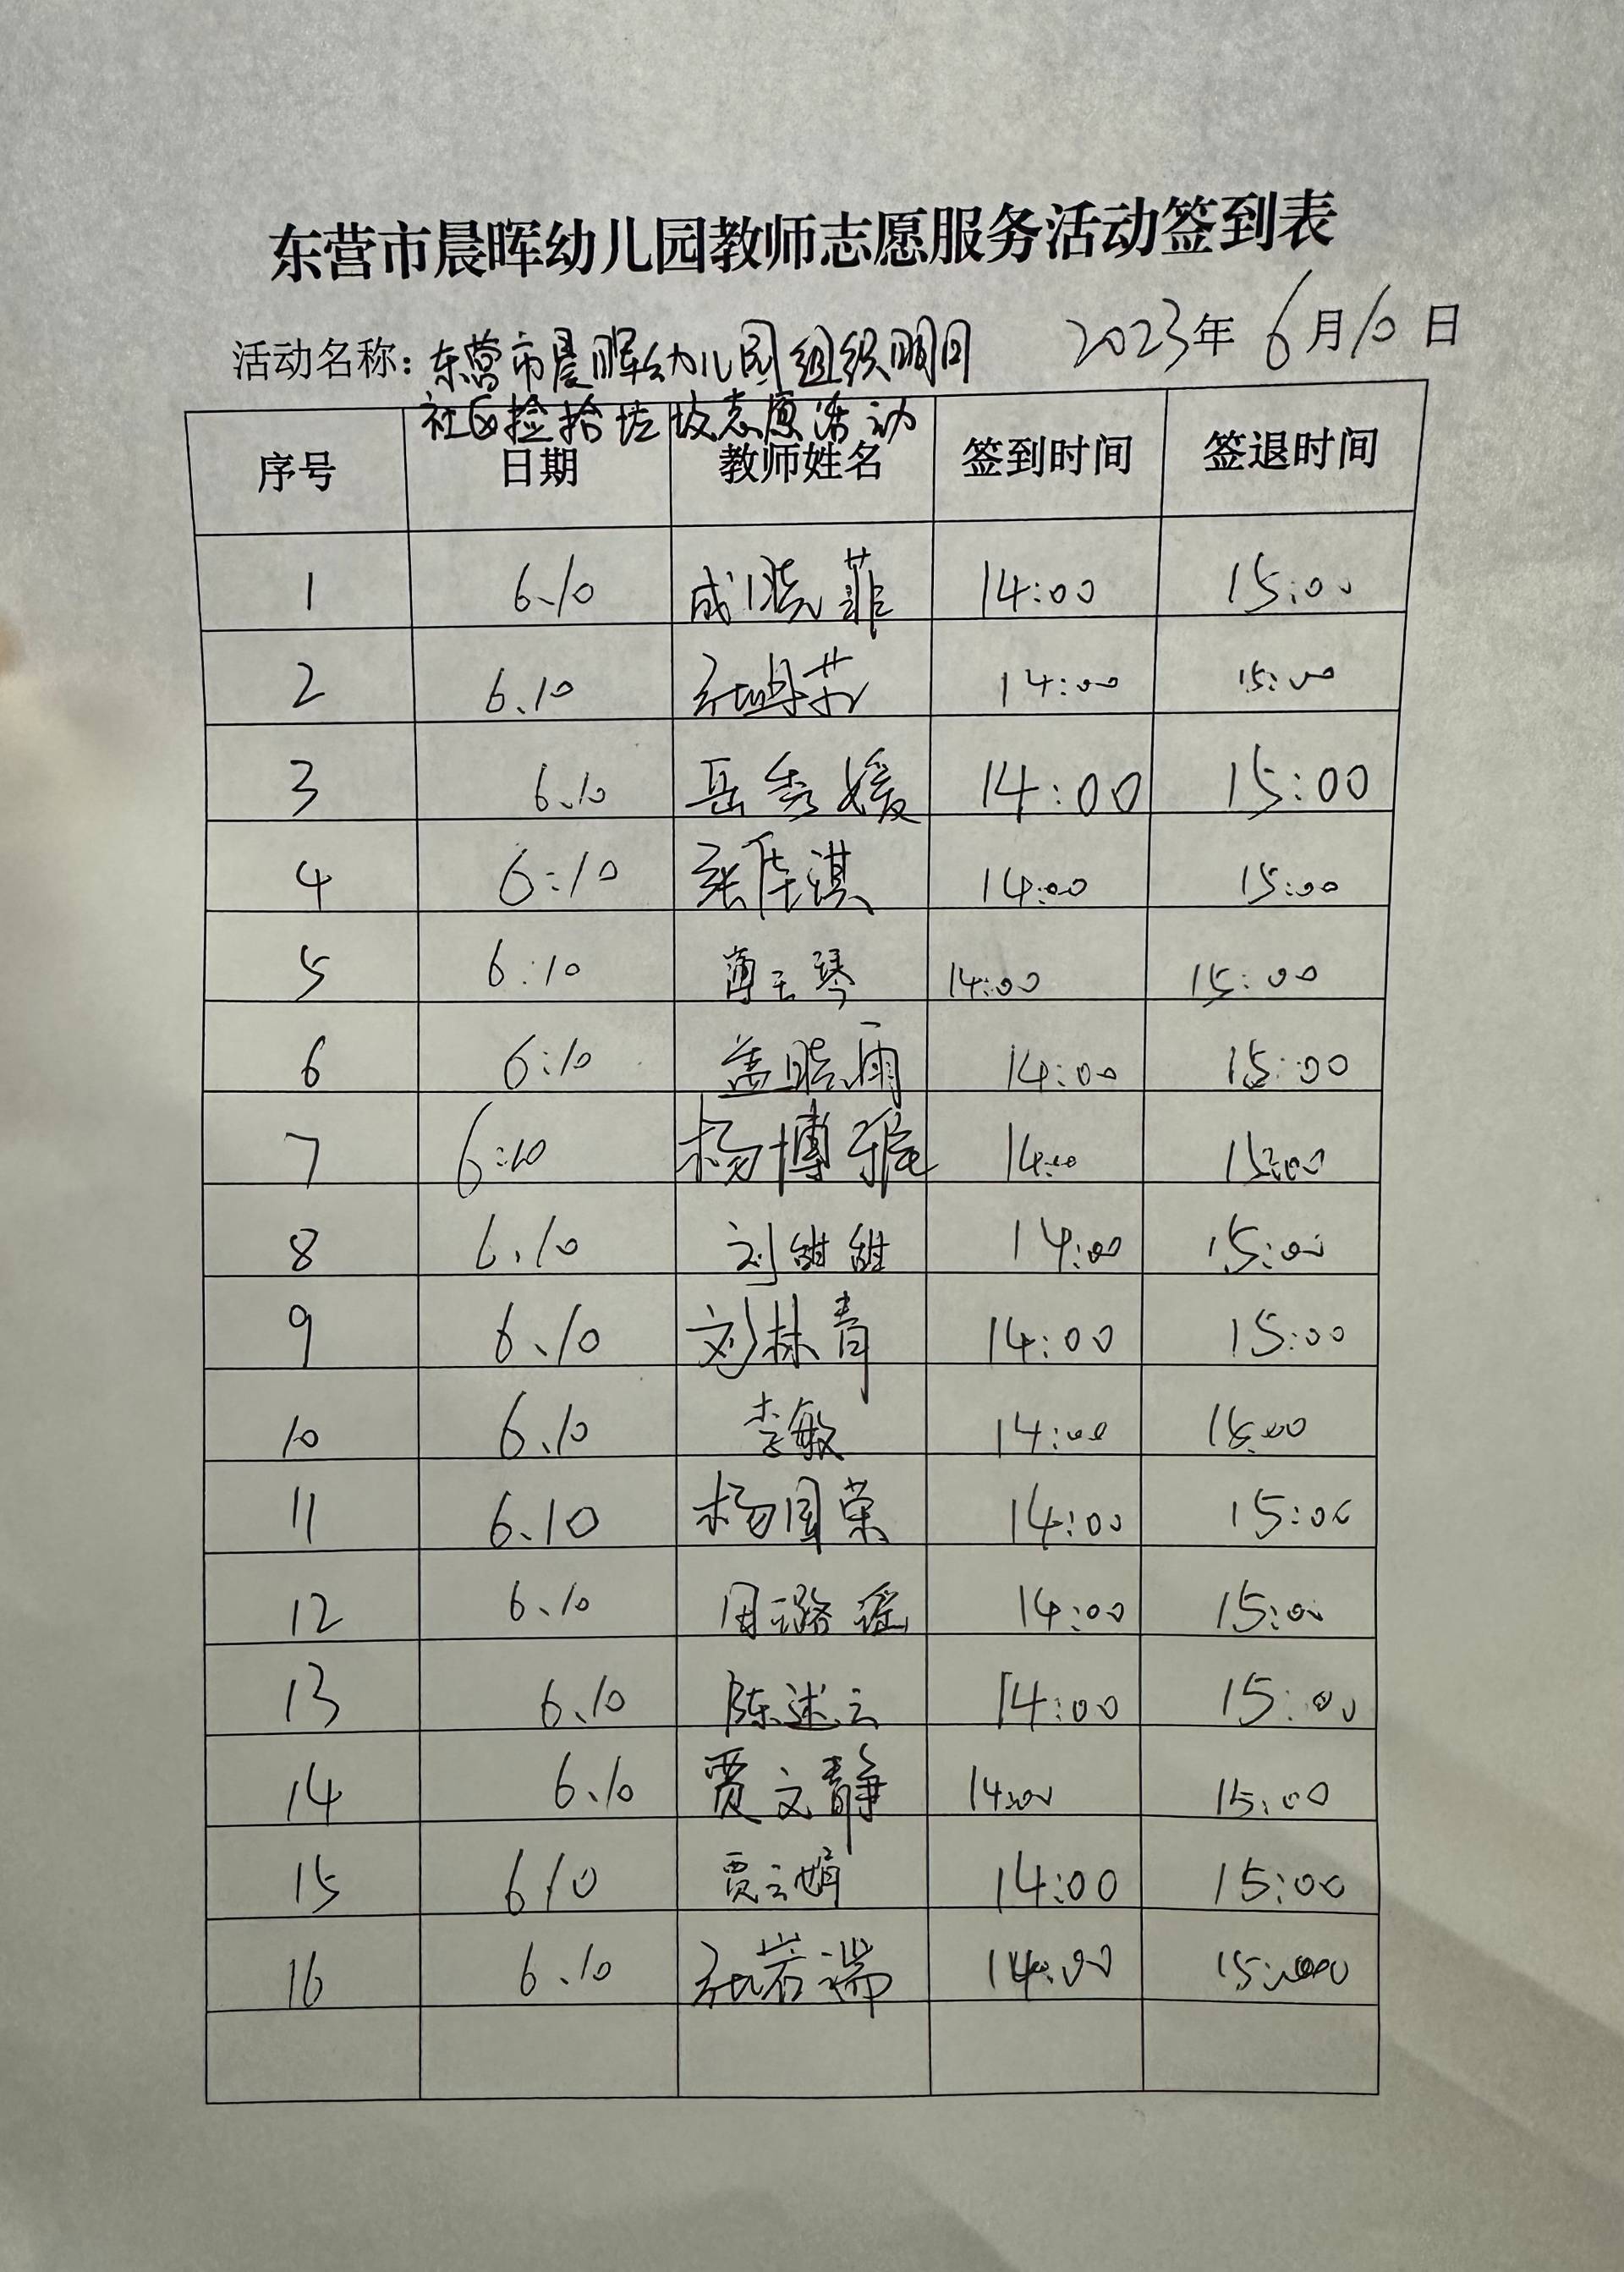 东营市晨晖幼儿园教师志愿服务活动签到表
活动名称：东营市晨晖幼儿园组织明月 2023年6月10日
社区捡拾垃圾志愿活动
序号 日期 教师姓名 签到时间 签退时间
1 6.10 成晓菲 14:00 15:00
2 6.10 14:00 15:00
3 6.10 岳秀媛 14:00 15:00
4 6:10 张佳淇 14:00 15:00
5 6:10 14:00 15:00
6 6:10 盖晓雨 14:00 15:00
7 6:10 杨博雅 14:00 15:00
8 6.10 刘甜甜 14:00 15:00
9 6.10 刘林青 14:00 15:00
10 6.10 李敏 14:00 15:00
11 6.10 杨国荣 14:00 15:00
12 6.10 周璐瑶 14:00 15:00
13 6.10 陈述云 14:00 15:00
14 6.10 贾文静 14:00 15:00
15 6.10 贾云娟 14:00 15:00
16 6.10 岩瑞 14:00 15:00